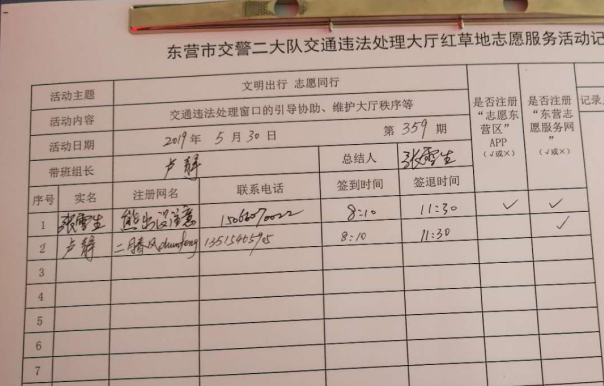 东营市交警二大队交通违法处理大厅红草地志愿服务活动记
活动主题 文明出行 志愿同行
活动内容 交通违法处理窗口的引导协助、维护大厅秩序等
活动日期 2019年 5月30日 第359期
带班组长 卢静 总结人 张雪生
是否注册“志愿东营区”APP（√或×）
是否注册“东营志愿服务网”（√或×）
记录
序号 实名 注册网名 联系电话 签到时间 签退时间
1 张雪生 熊出没注意 8:10 11:30 ✓ ✓
2 卢静 二月春风 8:10 11:30 ✓
3
4
5
6
7